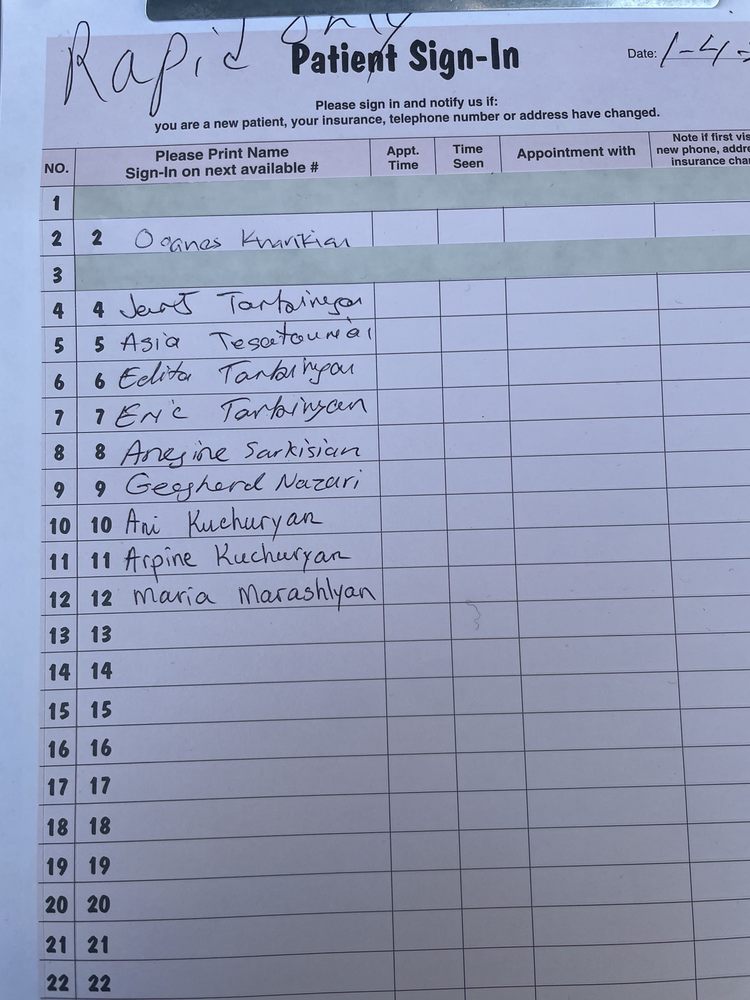 Rapid Only
Patient Sign-In
Date: 1-4-
Please sign in and notify us if:
you are a new patient, your insurance, telephone number or address have changed.
NO. Please Print Name Sign-In on next available # Appt. Time Time Seen Appointment with Note if first new phone, insurance
1
2 2 Oganes
3
4 4
5 5 Asia
6 6 Edita Tarbinyan
7 7 Eric Tarbinyan
8 8 Anegine Sarkisian
9 9 Nazari
10 10 Ani Kuchuryan
11 11 Arpine Kuchuryan
12 12 Maria Marashlyan
13 13
14 14
15 15
16 16
17 17
18 18
19 19
20 20
21 21
22 22